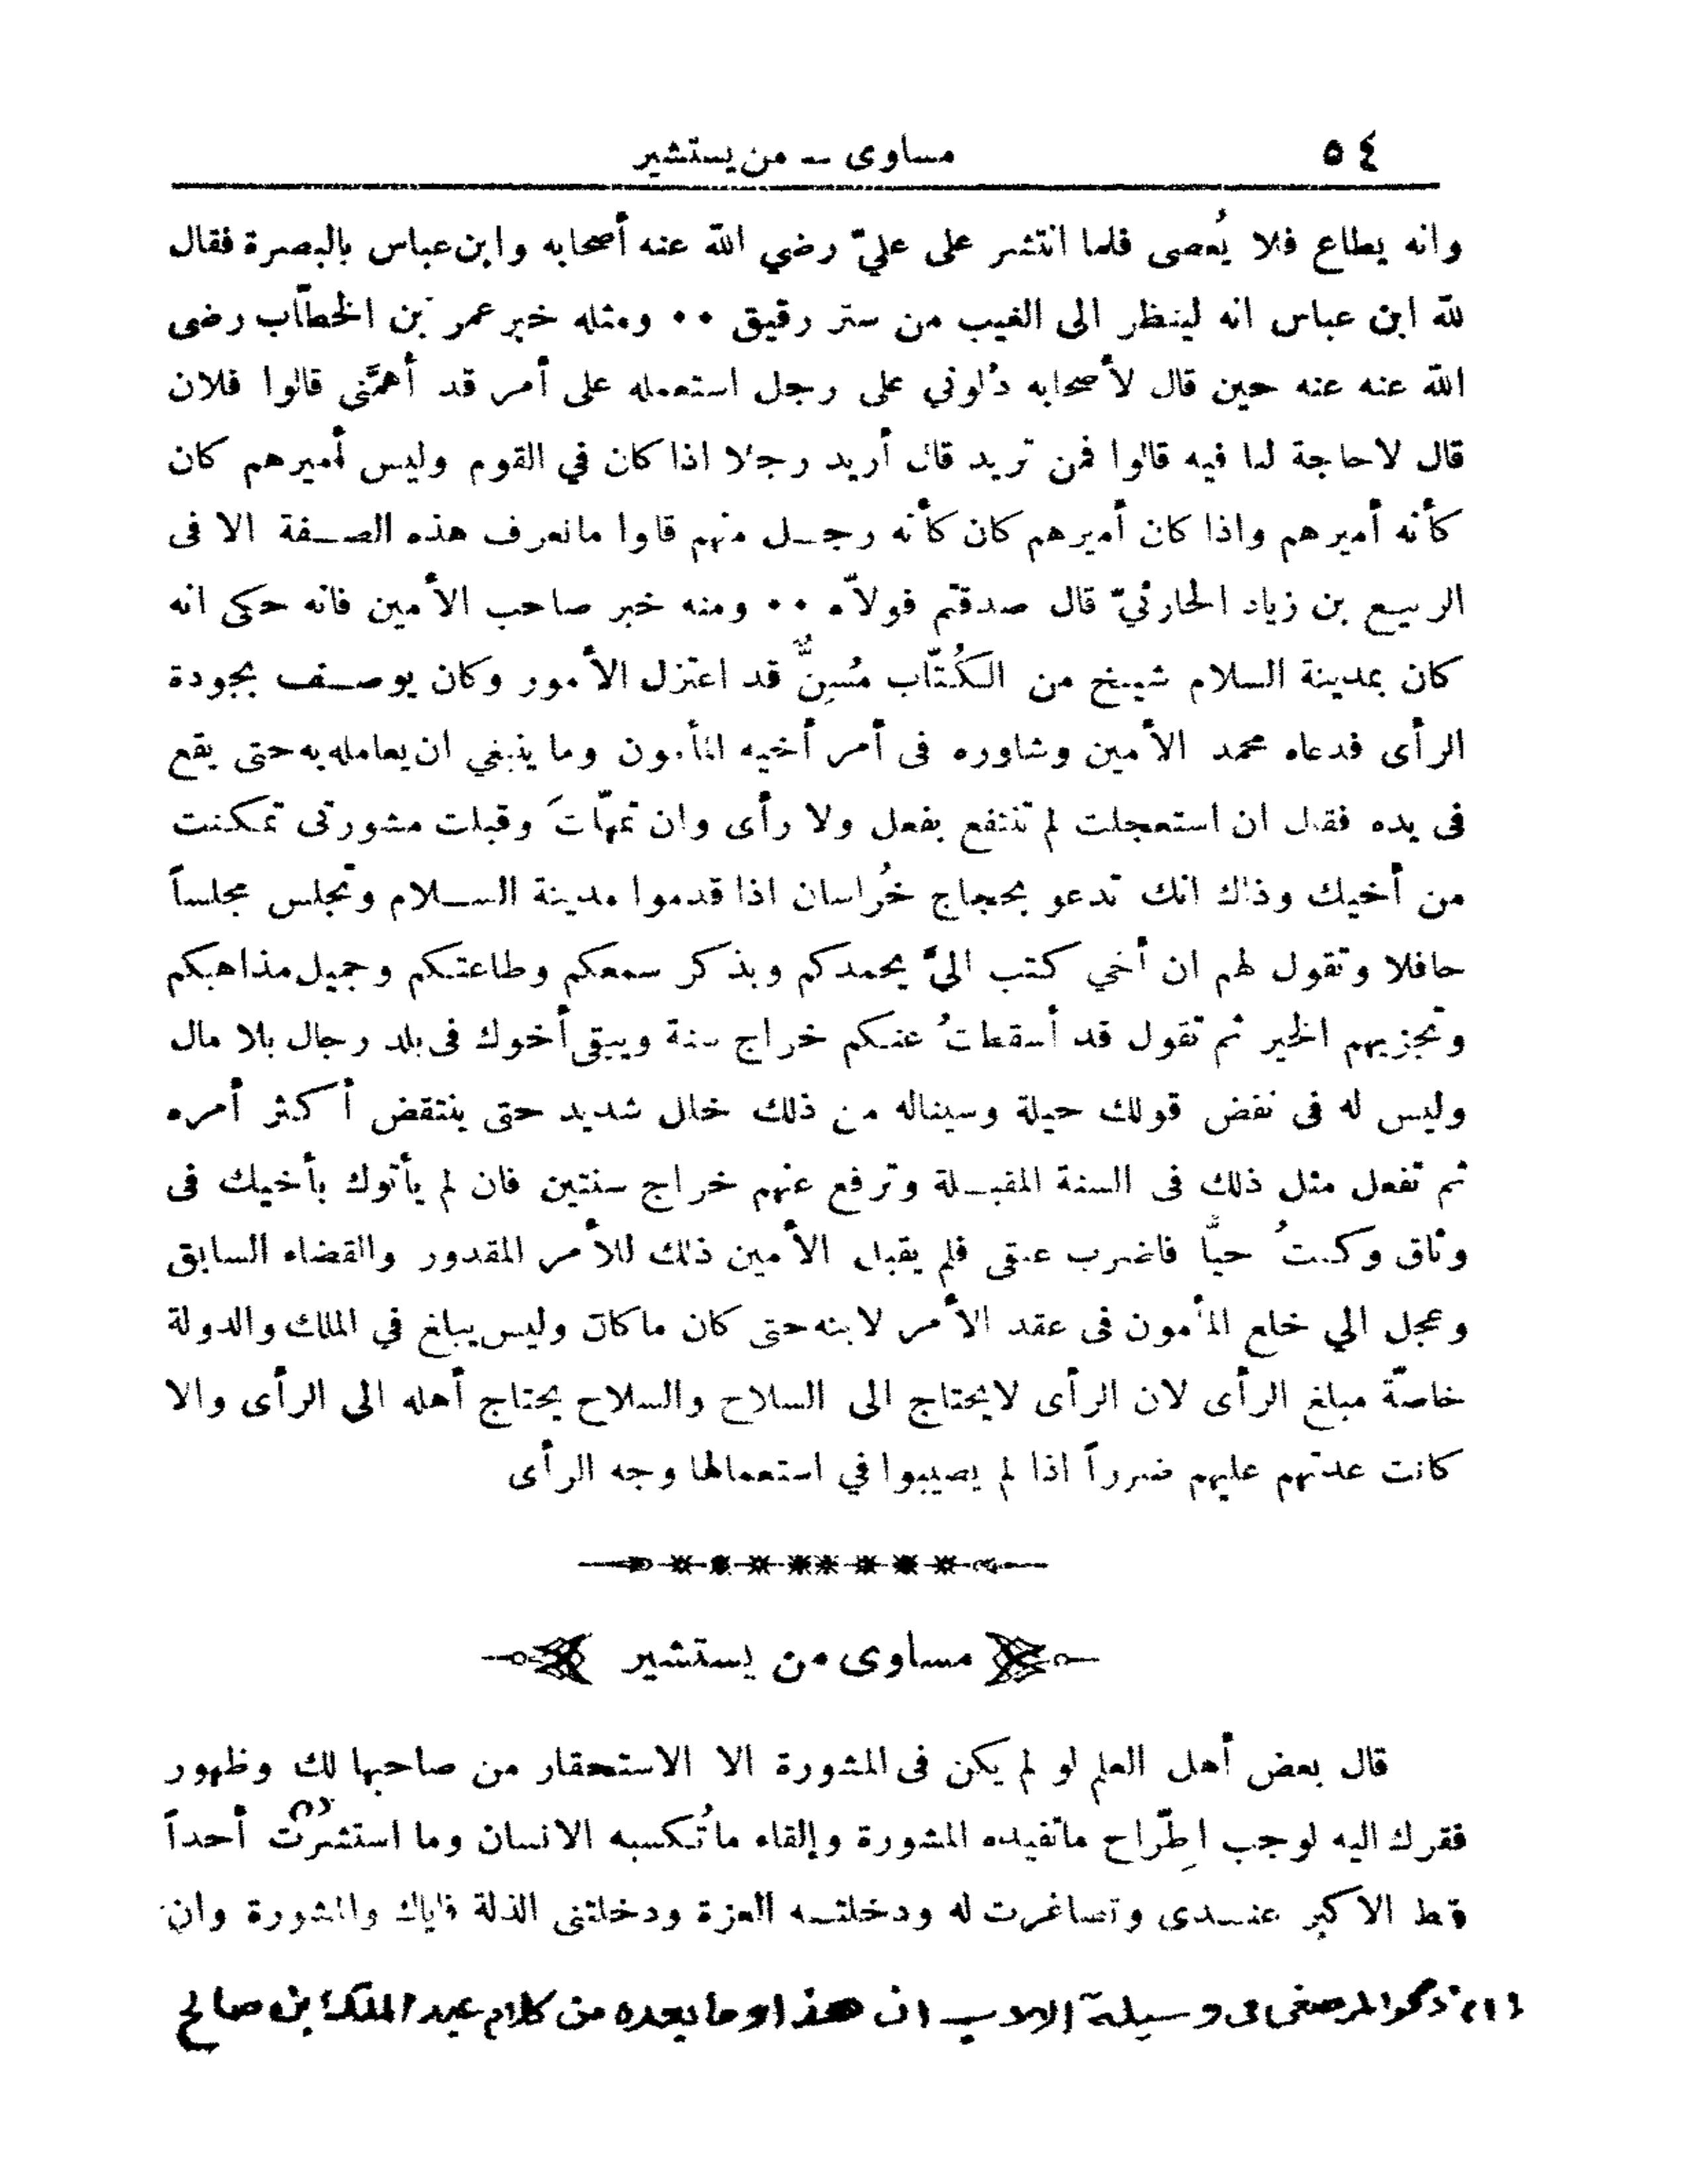 ٥٤ مساوى ــ من يستشير
وانه يطاع فلا يُعصى فلما انتشر على عليّ رضي الله عنه أصحابه وابن عباس بالبصرة فقال
لله ابن عباس انه لينظر الى الغيب من ستر رقيق ٠٠ ومثله خبر عمر بن الخطّاب رضى
الله عنه عنه حين قال لأصحابه دُلوني على رجل استعمله على أمر قد أهمَّني قالوا فلان
قال لاحاجة لنا فيه قالوا فمن تريد قال أريد رجلا اذا كان في القوم وليس أميرهم كان
كأنه أميرهم واذا كان أميرهم كان كأنه رجـل منهم قاوا مانعرف هذه الصـفة الا فى
الربيع بن زياد الحارثيّ قال صدقتم فولاّه ٠٠ ومنه خبر صاحب الأمين فانه حكى انه
كان بمدينة السلام شيخ من الكُتّاب مُسِنٌّ قد اعتزل الأمور وكان يوصـف بجودة
الرأى فدعاه محمد الأمين وشاوره فى أمر أخيه المأمون وما ينبغي ان يعامله به حتى يقع
فى يده فقال ان استعجلت لم تنتفع بفعل ولا رأى وان تمهّلتَ وقبلت مشورتى تمكنت
من أخيك وذلك انك تدعو بحجاج خُراسان اذا قدموا مدينة السـلام وتجلس مجلساً
حافلا وتقول لهم ان أخي كتب اليَّ يحمدكم ويذكر سمعكم وطاعتكم وجميل مذاهبكم
وتجزيهم الخير ثم تقول قد أسقطتُ عنكم خراج سنة ويبقى أخوك فى بلد رجال بلا مال
وليس له فى نقض قولك حيلة وسيناله من ذلك خلل شديد حتى ينتقض أكثر أمره
ثم تفعل مثل ذلك فى السنة المقبـلة وترفع عنهم خراج سنتين فان لم يأتوك بأخيك فى
وثاق وكنتُ حيًّا فاضرب عنقى فلم يقبل الأمين ذلك للأمر المقدور والقضاء السابق
وعجل الي خلع المأمون فى عقد الأمر لابنه حتى كان ماكان وليس يبلغ في الملك والدولة
خاصّة مبلغ الرأى لان الرأى لايحتاج الى السلاح والسلاح يحتاج أهله الى الرأى والا
كانت عدتهم عليهم ضرراً اذا لم يصيبوا في استعمالها وجه الرأى
مساوى من يستشير
قال بعض أهل العلم لو لم يكن فى المشورة الا الاستحقار من صاحبها لك وظهور
فقرك اليه لوجب اطِّراح ماتفيده المشورة وإلقاء ماتُكسبه الانسان وما استشرت أحداً
قط الا كبر عنـدى وتصاغرت له ودخلتـه العزة ودخلتنى الذلة فاياك والمشورة وان
(١) ذكر المرصفى فى وسيلة الادب ان هذا وما بعده من كلام عبد الملك بن صالح